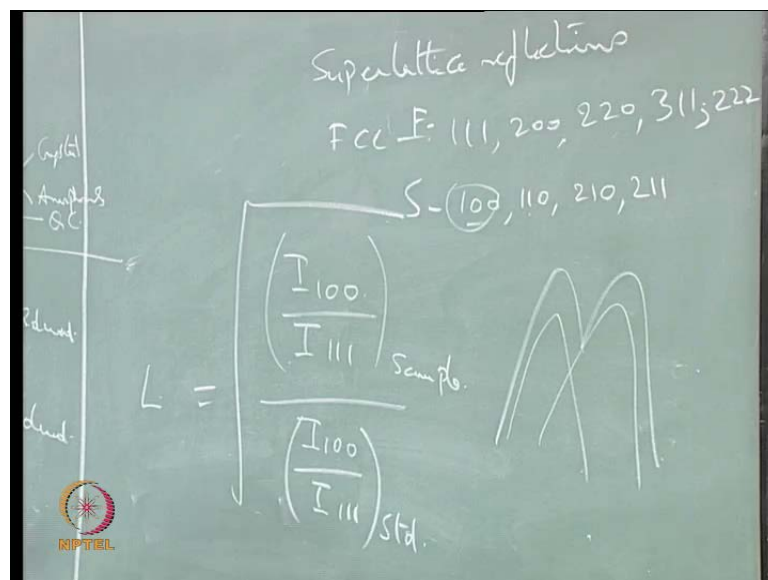 Superlattice reflections
FCC F- 111, 200, 220, 311, 222
S- 100, 110, 210, 211
Crystal
Amorphous
QC
L = √ (I100 / I111) Sample
(I100 / I111) Std.
NPTEL